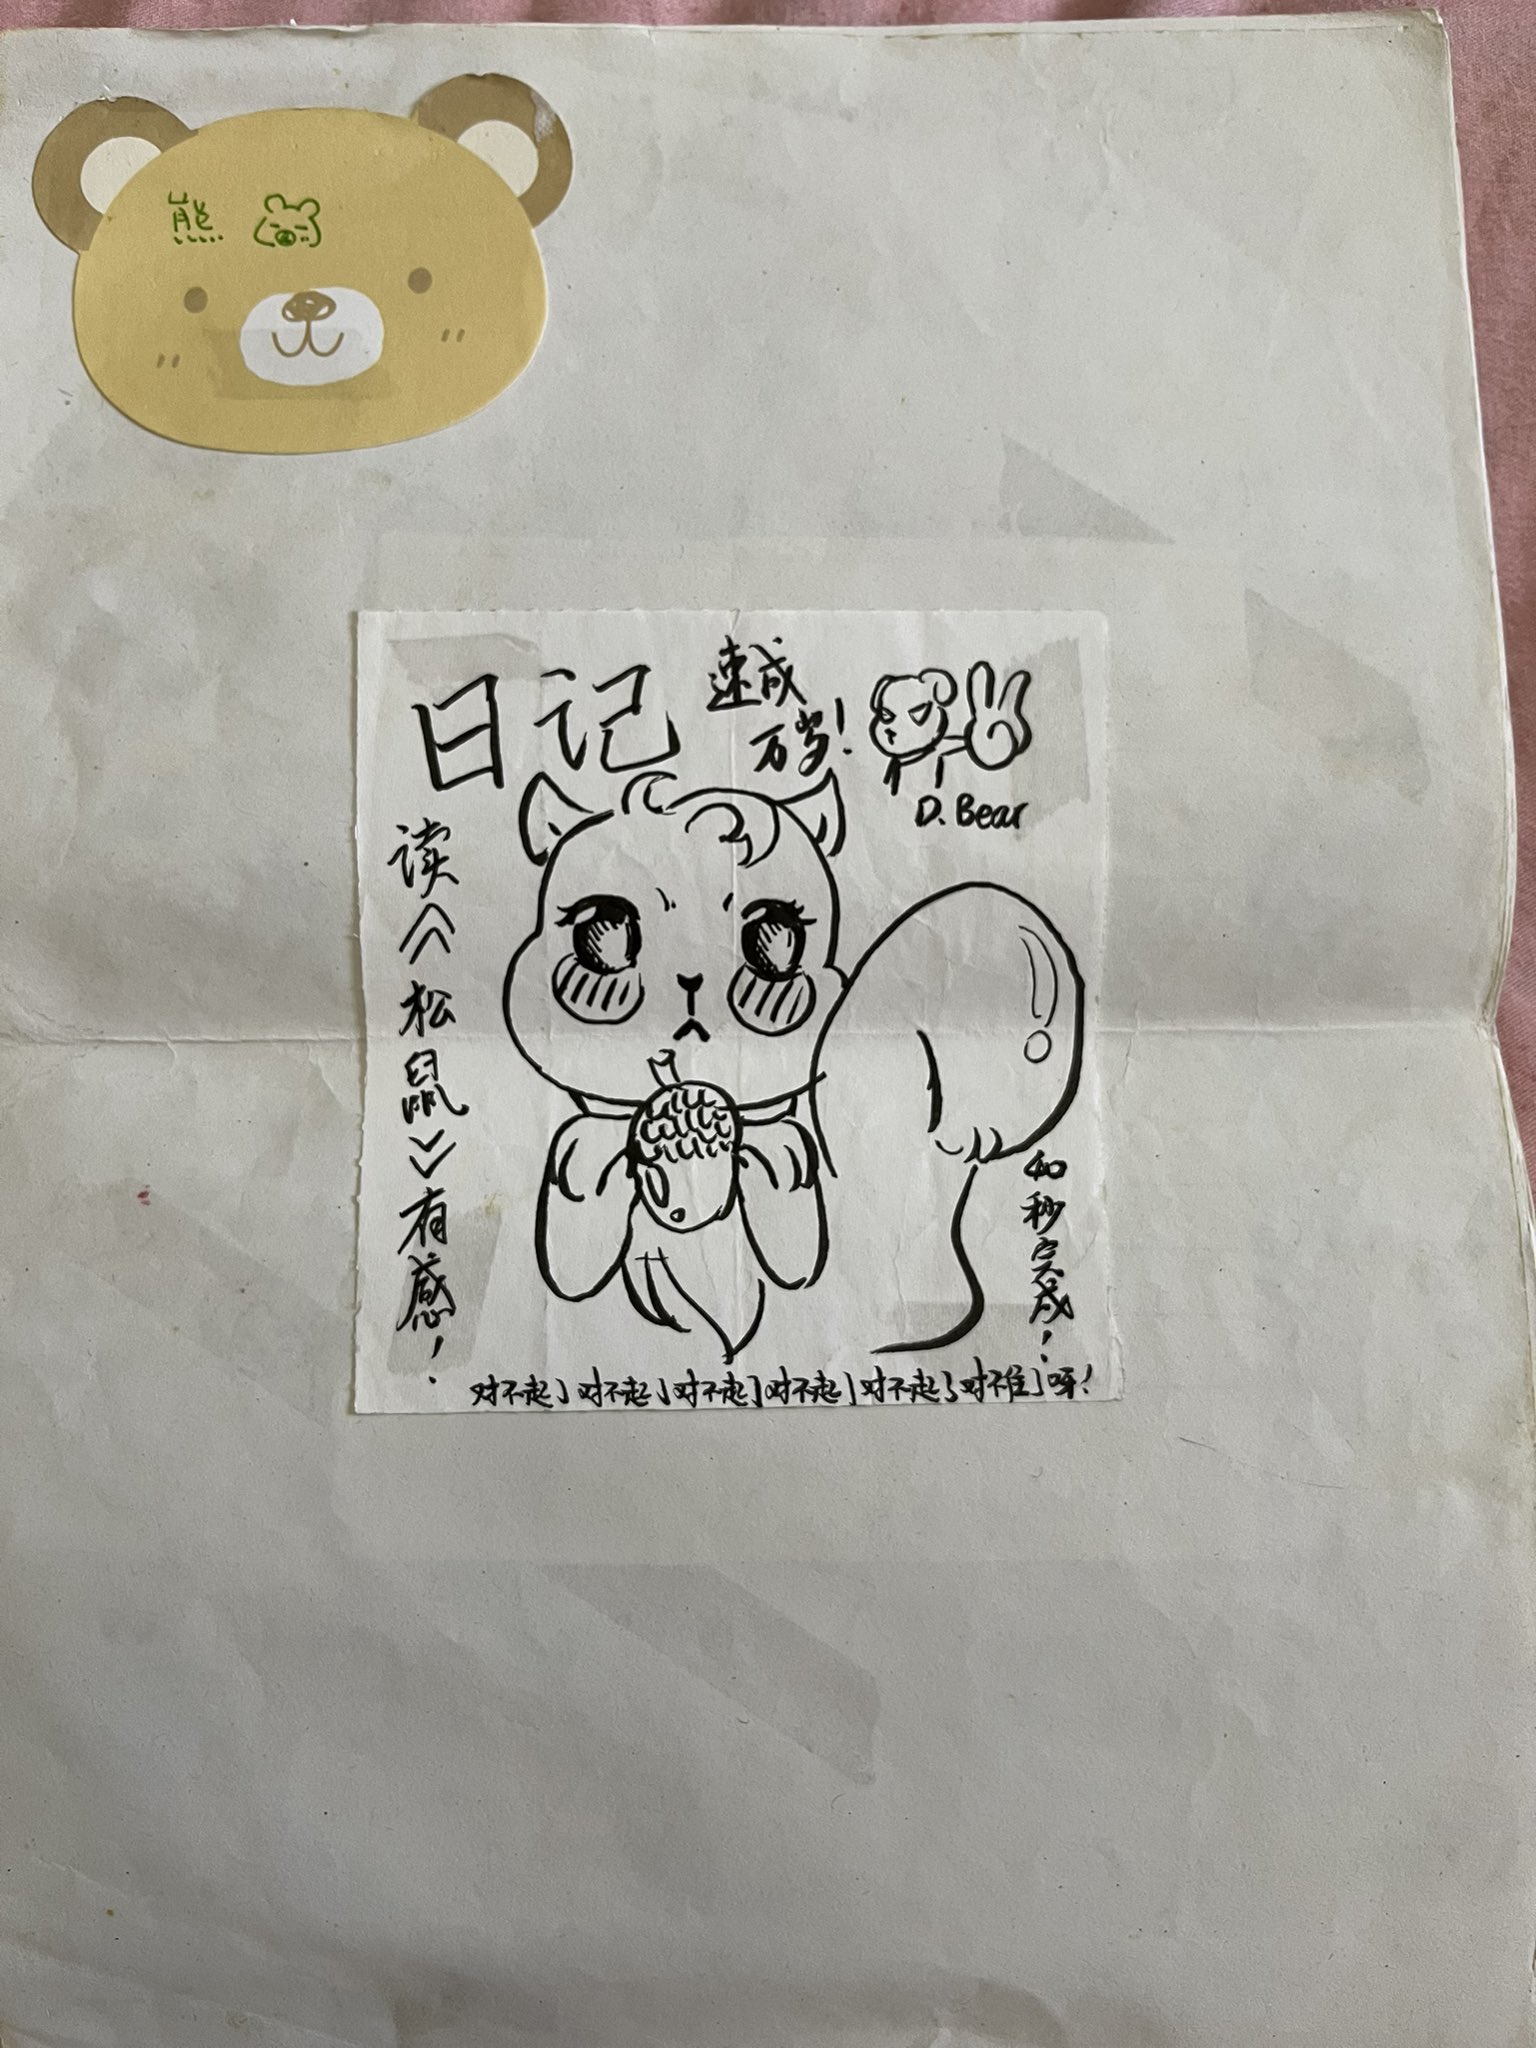 熊
日记
速成
万岁！
D. Bear
读《松鼠》有感！
40秒完成！
对不起了对不起了对不起了对不起了对不起了对不住了呀！